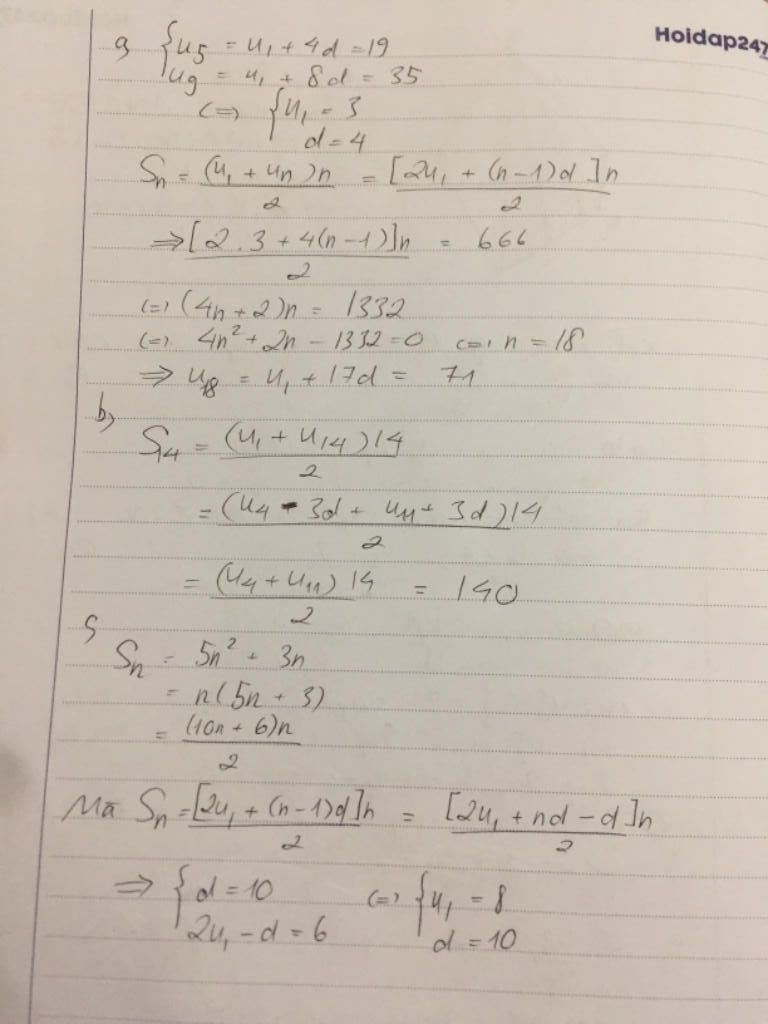 Hoidap247
a, { u5 = u1 + 4d = 19
u9 = u1 + 8d = 35
<=> { u1 = 3
d = 4
Sn = (u1 + un)n / 2 = [2u1 + (n-1)d]n / 2
=> [2.3 + 4(n-1)]n / 2 = 666
<=> (4n+2)n = 1332
<=> 4n² + 2n - 1332 = 0 <=> n = 18
=> u18 = u1 + 17d = 71
b,
S14 = (u1 + u14)14 / 2
= (u4 - 3d + u11 + 3d)14 / 2
= (u4 + u11)14 / 2 = 140
c,
Sn = 5n² + 3n
= n(5n + 3)
= (10n + 6)n / 2
Mà Sn = [2u1 + (n-1)d]n / 2 = [2u1 + nd - d]n / 2
=> { d = 10 <=> { u1 = 8
2u1 - d = 6 d = 10